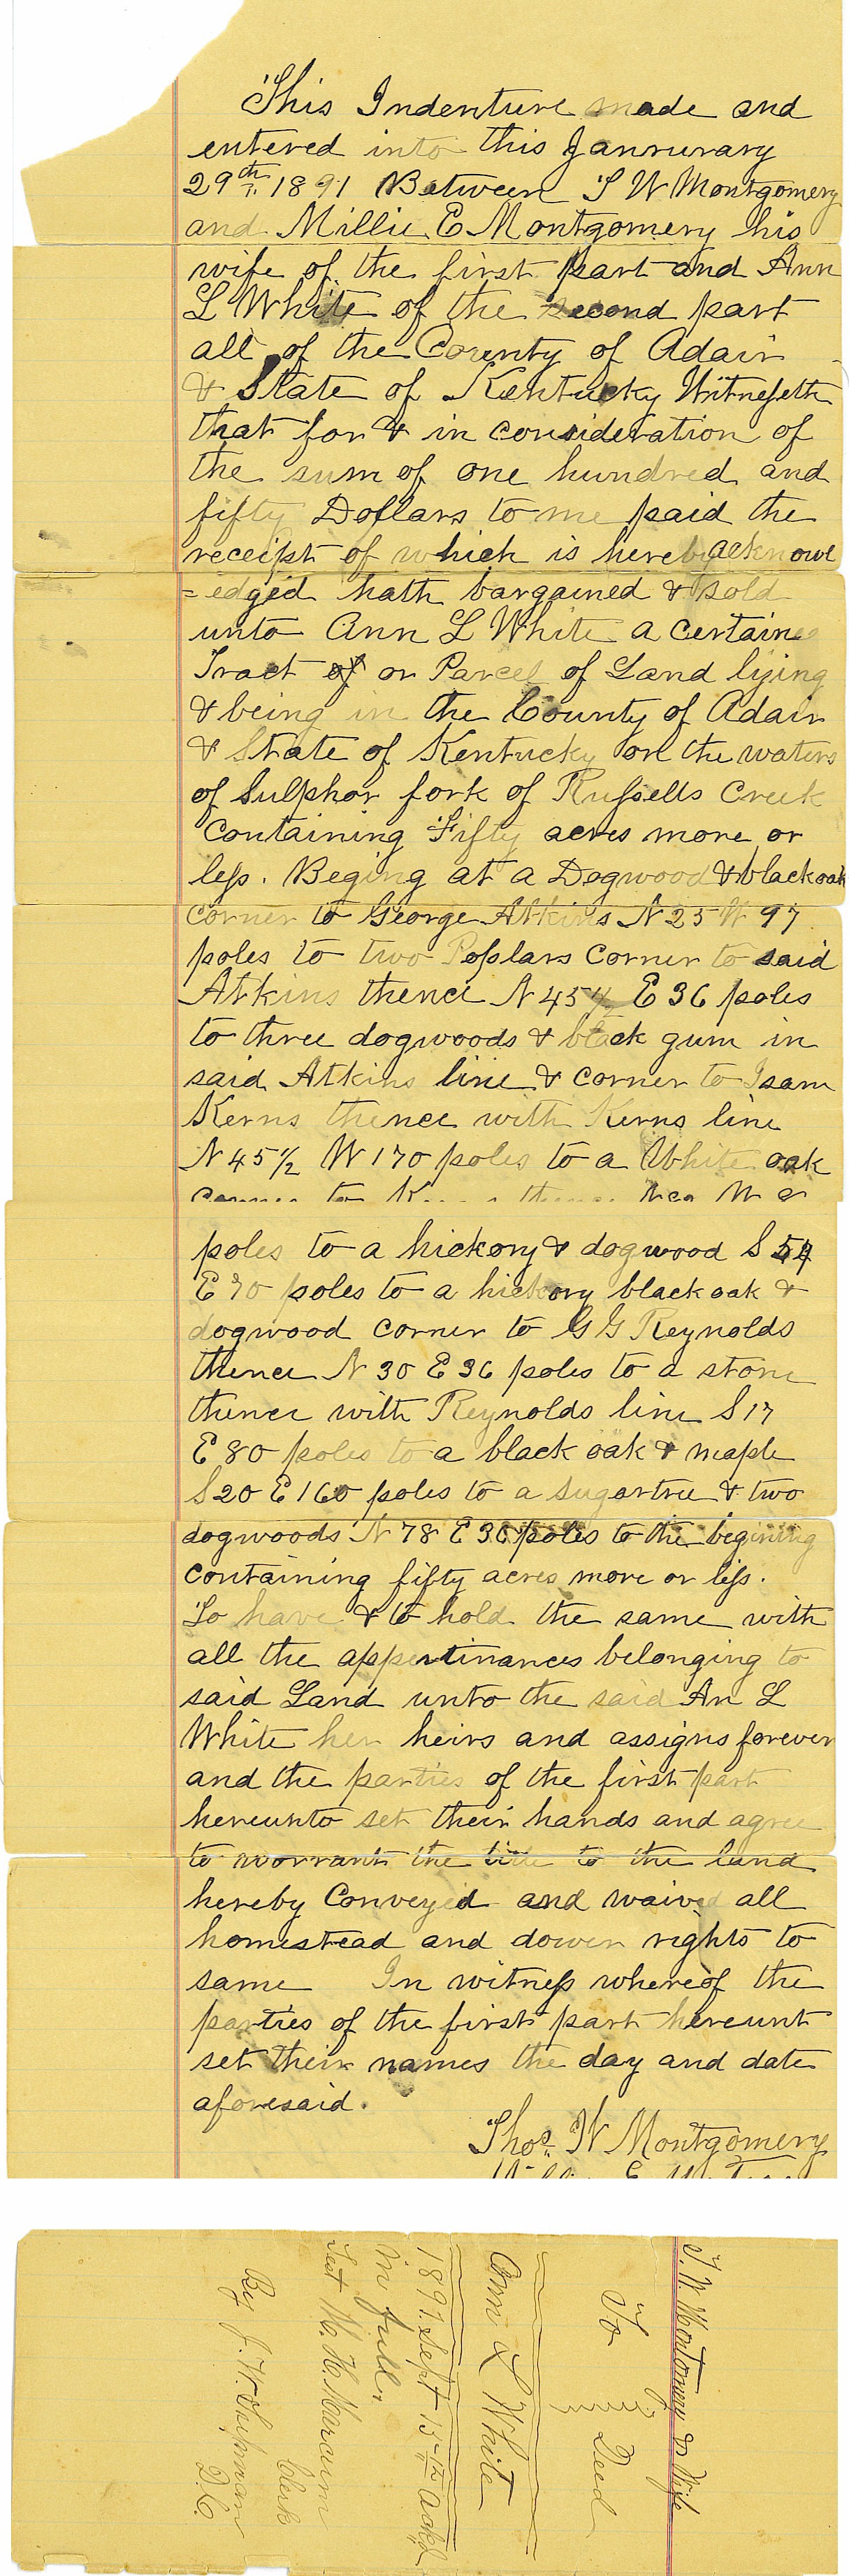 This Indenture made and
entered into this Jannurary
29th 1891 Between T W Montgomery
and Millie E Montgomery his
wife of the first part and Ann
L White of the second part
all of the County of Adair
& State of Kentucky Witnesseth
that for & in consideration of
the sum of one hundred and
fifty Dollars to me paid the
receipt of which is hereby acknowl
=edged hath bargained & sold
unto Ann L White a certain
Tract of or Parcel of Land lying
& being in the County of Adair
& State of Kentucky on the waters
of Sulphor fork of Russells Creek
Containing Fifty acres more or
less. Beging at a Dogwood & black oak
corner to George Atkins N 25 W 97
poles to two Poplars Corner to said
Atkins thence N 45 1/2 E 36 poles
to three dogwoods & black gum in
said Atkins line & corner to Isam
Kerns thence with Kerns line
N 45 1/2 W 170 poles to a White oak
corner to
poles to a hickory & dogwood S 54
E 70 poles to a hickory black oak &
dogwood corner to G G Reynolds
thence N 30 E 36 poles to a stone
thence with Reynolds line S 17
E 80 poles to a black oak & maple
S 20 E 160 poles to a sugartree & two
dogwoods N 78 E 36 poles to the begining
containing fifty acres more or less.
To have & to hold the same with
all the appertinances belonging to
said Land unto the said An L
White her heirs and assigns forever
and the parties of the first part
hereunto set their hands and agree
to worrant the title to the land
hereby Conveyed and waive all
homestead and dower rights to
same In witness whereof the
parties of the first part hereunt
set their names the day and date
aforesaid.
Thos. W Montgomery
T. W. Montomery & Wife
To Deed
Ann L White
1891 Sept 15th Ackd
in full
Test M. H. Marcum
Clerk
By J. W. Chapman
D.C.